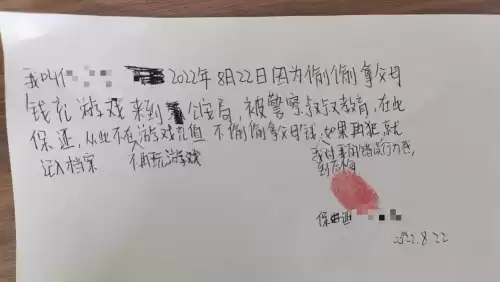 我叫 2022年8月22日因为偷偷拿父母
钱充游戏来到公安局,被警察叔叔教育,在此
保证,从此不在游戏充值 不偷偷拿父母钱,如果再犯就
记入档案 不再玩游戏
我对
到后悔
2022.8.22